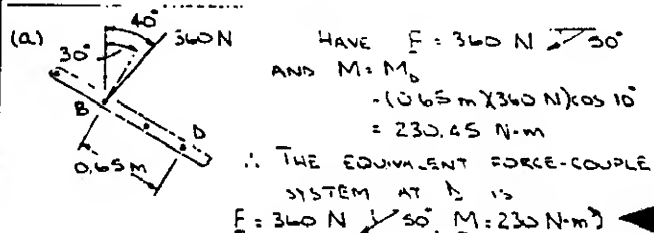 (a)
40°
30°
360 N
B
D
0.65 m
HAVE F = 360 N 50°
AND M = M_D
= (0.65 m)(360 N) cos 10°
= 230.45 N·m
∴ THE EQUIVALENT FORCE-COUPLE
SYSTEM AT D IS
F = 360 N 50°, M = 230 N·m